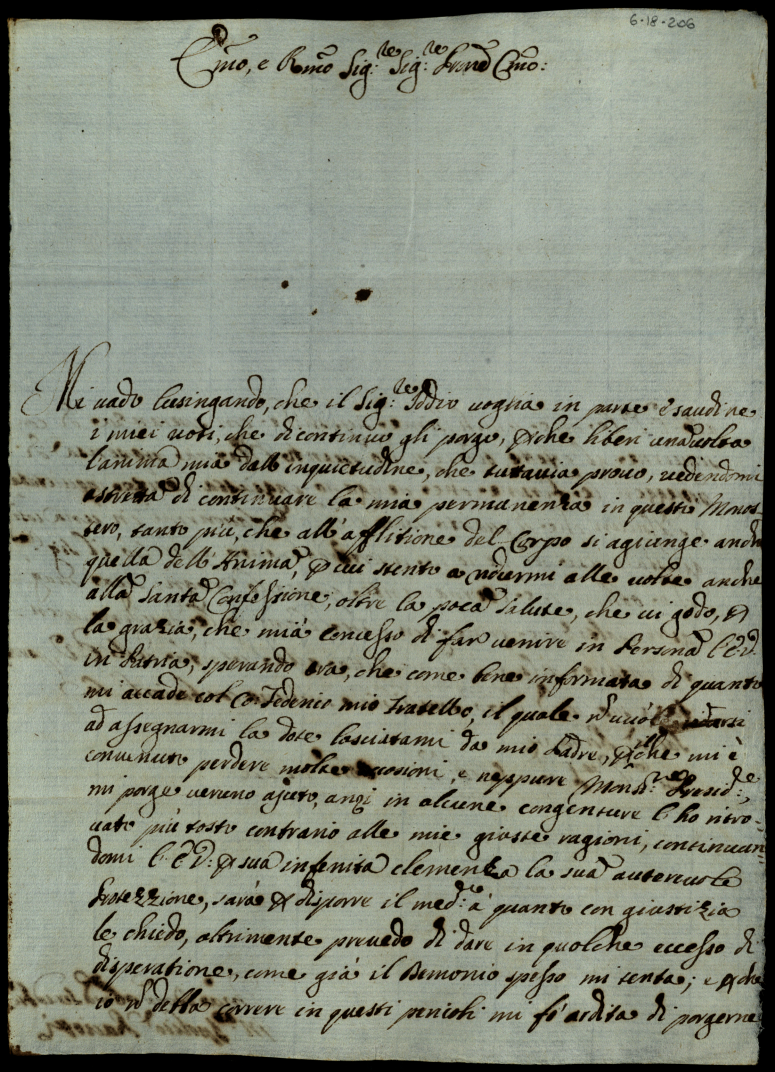 6-18-206
Emo, e Rmo Sig:re Sig:re Prone Cmo:
Mi vado lusingando, che il Sig:re Iddio voglia in parte esaudire
i miei voti, che di continuo gli porgo, perche liberi una volta
l'anima mia dall'inquietudine, che tuttavia provo, vedendomi
astretta di continuare la mia permanenza in questi Monas
tero, tanto più, che all'afflitione del Corpo si agiunge anche
quella dell'Anima, per cui stento a rendermi alle volte anche
alla Santa Confessione, oltre la poca salute, che vi godo, per
la grazia, che mi à concesso di far venire in Persona l'E.V.
in Patria, sperando ora, che come bene infirmata di quanto
mi accade col Co: Federico mio Fratello, il quale non vuole
ad assegnarmi la dote lasciatami da mio Padre, perche mi è
convenuto perdere molte occasioni, e neppure Mons:re Presid:te
mi porge veruno ajuto, anzi in alcune congenture l'ho ritro-
vato più tosto contrario alle mie giuste ragioni, continuan
domi l'E.V: per sua infenita clemenza la sua autorevole
Protezzione, sarà per disporre il med:o à quanto con giustizia
le chiedo, altrimente prevedo di dare in qualche eccesso di
disperatione, come già il Demonio spesso mi tenta; e perche
io non debba correre in questi pericoli mi fò ardita di porgerne